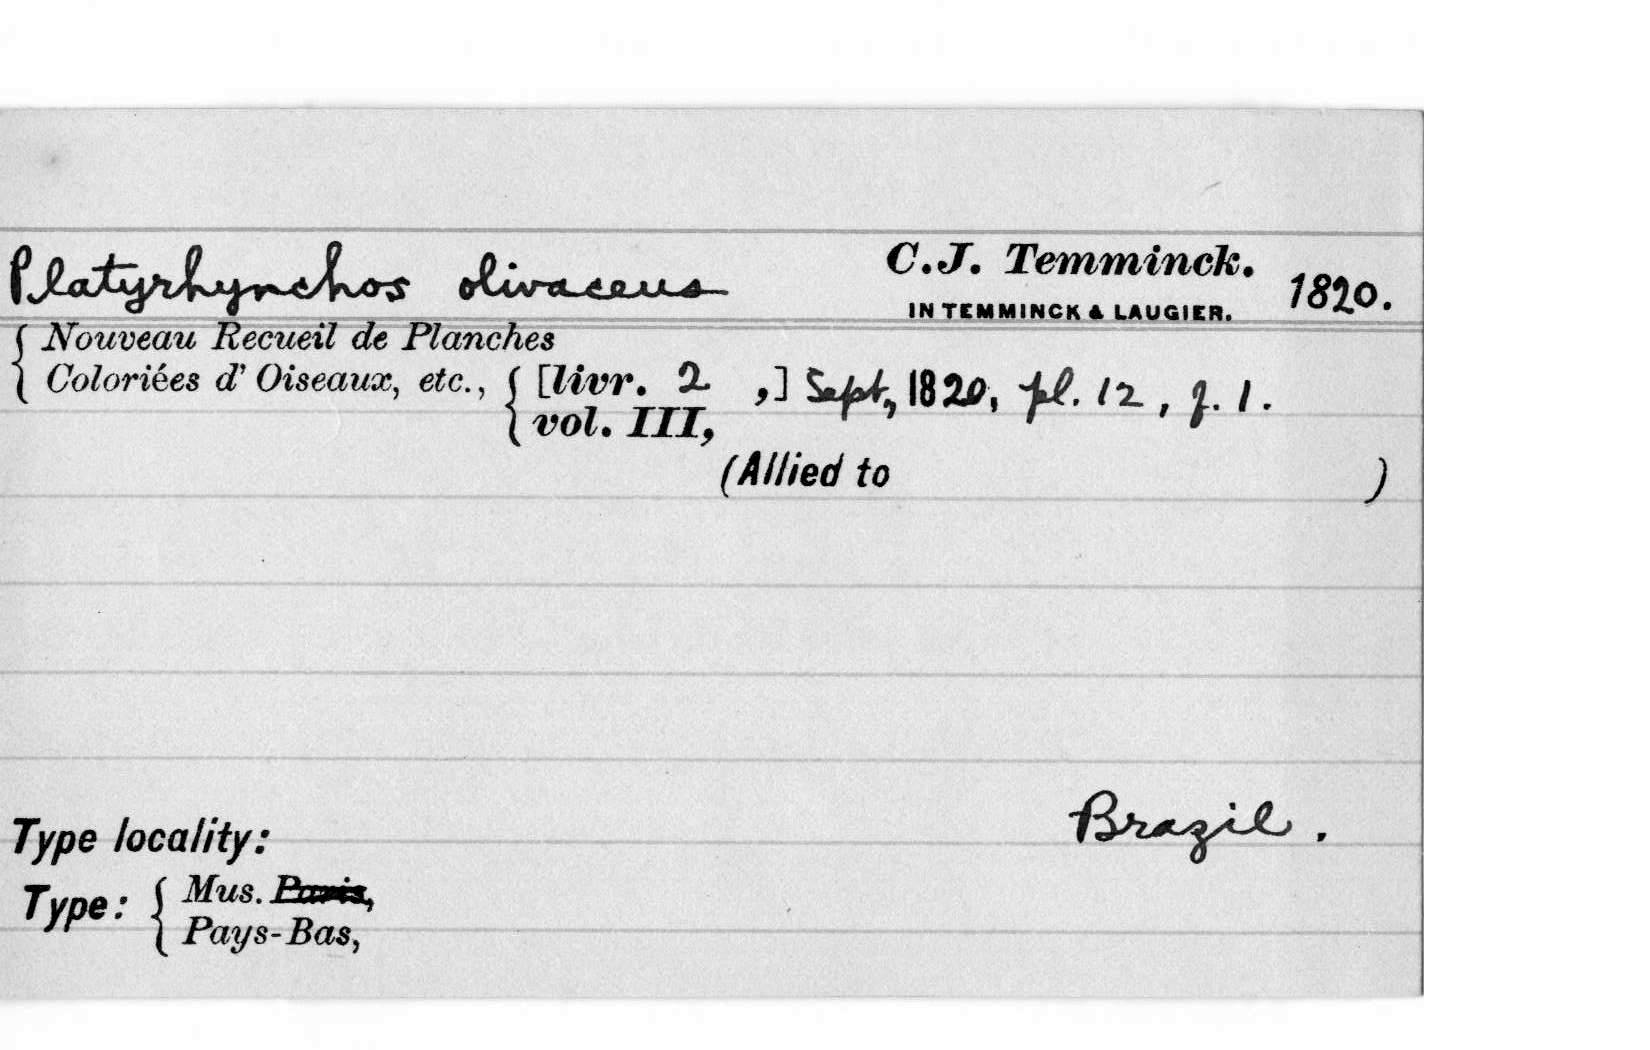 Platyrhynchos olivaceus C.J. Temminck. 1820.
IN TEMMINCK & LAUGIER.
{ Nouveau Recueil de Planches
Coloriées d' Oiseaux, etc., { [livr. 2 ,] Sept, 1820, pl. 12, f. 1.
vol. III,
(Allied to )
Type locality: Brazil.
Type: { Mus. Paris,
Pays-Bas,